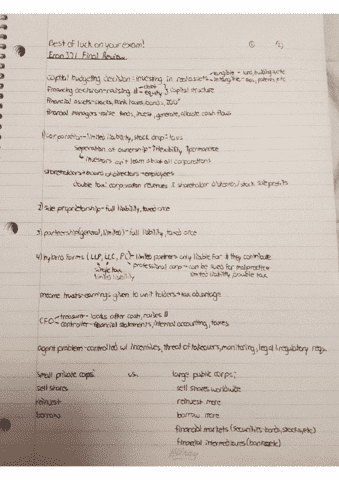 Best of luck on your exam!
Econ 371 Final Review
capital budgeting decision: investing in real assets
financing decision - raising $ debt equity capital structure
financial assets - stocks, bank loans, bonds,
financial managers - raise funds, invest, generate, allocate cash flows
1) corporation - limited liability, stock drop: loss
separation of ownership - flexibility & permanence
investors can't learn about all corporations
shareholders → board of directors → employees
double tax: corporation revenues & shareholder dividends/stock sale profits
2) sole proprietorship - full liability, taxed once
3) partnership (general, limited) - full liability, taxed once
4) hybrid forms (LLP, LLC, PC) - limited partners only liable for $ they contribute
single tax professional corp - can be sued for malpractice
limited liability limited liability, double tax
income trusts - earnings given to unit holders → tax advantage
CFO treasurer - looks after cash, raises $
controller - financial statements, internal accounting, taxes
agent problem - controlled w/ incentives, threat of takeovers, monitoring, legal & regulatory reqs.
small private corps: vs. large public corps:
sell shares sell shares worldwide
reinvest reinvest more
borrow borrow more
financial markets (securities - bonds, stocks, etc)
financial intermediaries (banks, etc)